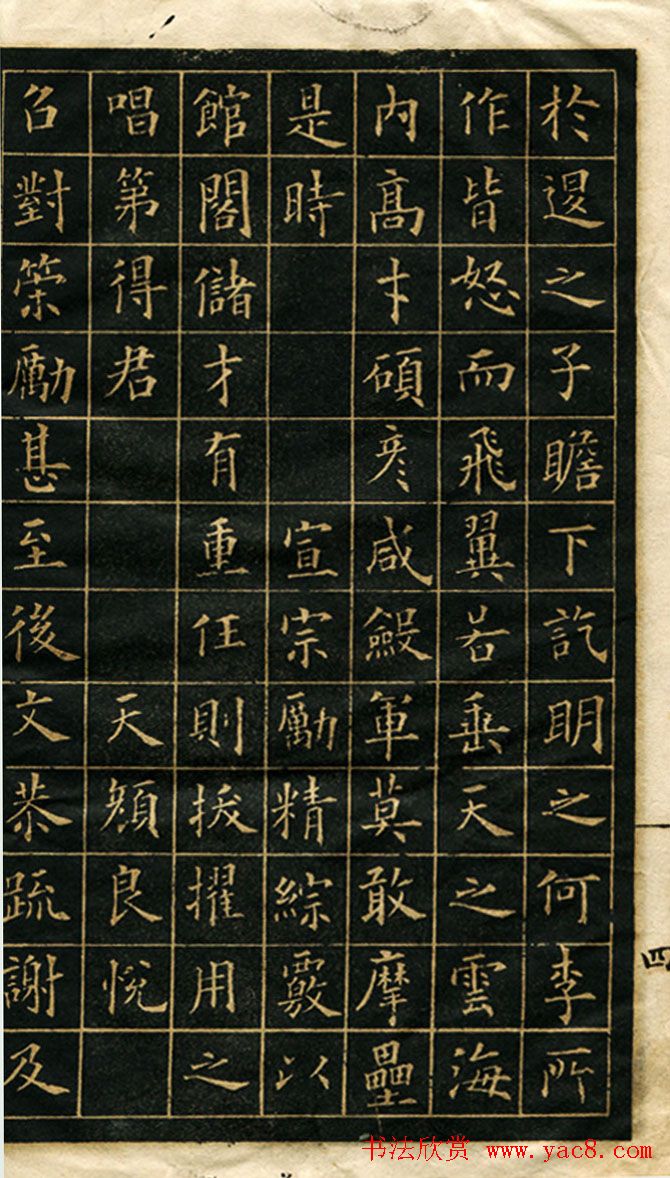 於退之子瞻下訖明之何李所
作皆怒而飛翼若垂天之雲海
內高才碩彥咸殿軍莫敢摩壘
是時宣宗勵精綜覈以
館閣儲才有重任則拔擢用之
唱第得君天顏良悅
召對榮勵甚至後文恭疏謝及
四
书法欣赏 www.yac8.com